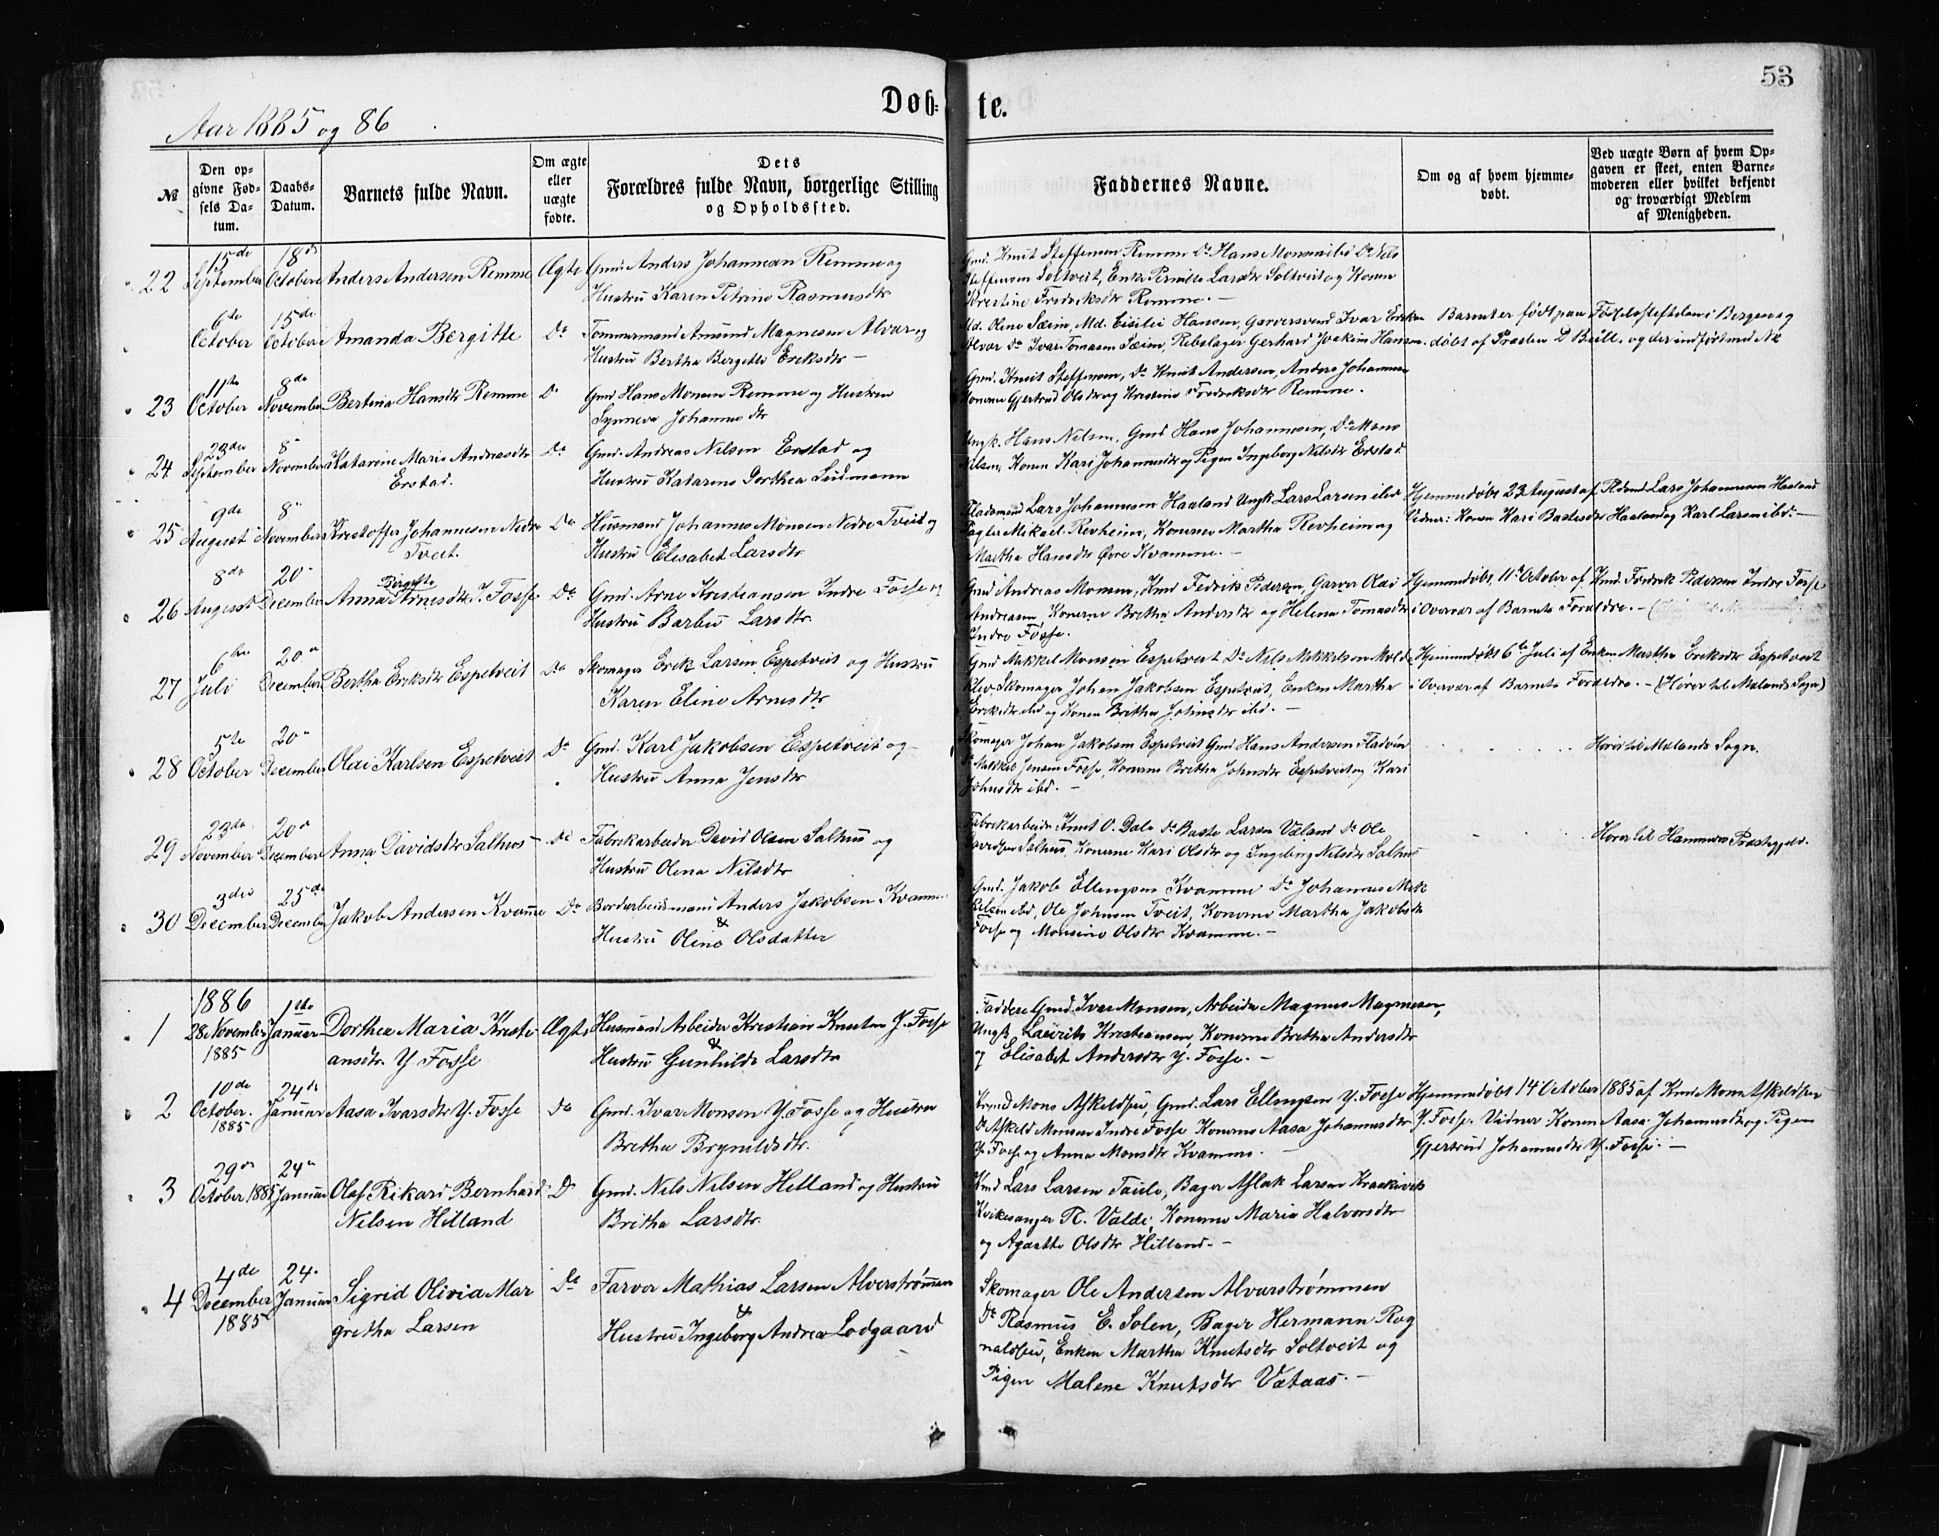 53
Aar 1885 og 86
Døb-
te.
№
Den op-
givne Fød-
sels Da-
tum.
Daabs-
Datum.
Barnets fulde Navn.
Om ægte
eller
uægte
fødte.
Dets
Forældres fulde Navn, borgerlige Stilling
og Opholdssted.
Faddernes Navne.
Om og af hvem hjemme-
døbt.
Ved uægte Børn af hvem Op-
gaven er skeet, enten Barne-
moderen eller hvilket bekjendt
og troværdigt Medlem
af Menigheden.
22
15de
September
18de
October
Anders Andersen Remme
Ægte
Gmd. Anders Johannesen Remme og
Hustru Karen Petrine Rasmusdtr
Gmd. Knut Steffensen Remme Do Hans Monsen ibd Do Nils
Steffensen Soltveit, Enke Pernille Larsdtr Soltveit og Konen
Kirstine Fredriksdtr Remme. —
6te
October
15de
October
Amanda Bergitte
Do
Tømmermand Amund Magnesen Alver og
Hustru Bertha Bergitte Eriksdtr —
Md. Oline Sæim, Md. Hansen, Garversvend Ivar Eriksen
Alver Do Ivar Tomasen Sæim, Rebslager Gerhard Joakim Hansen.
Barnet er født paa Fødselsstiftelsen i Bergen og
døbt af Præsten D Bull. og der indført med №
23
11te
October
8de
November
Bertina Hansdtr Remme
Do
Gmd Hans Monsen Remme og Hustru
Synneva Johannesdtr
Gmd. Knut Steffensen, Do Knut Andersen, Anders Johannesen
Konerne Gjertrud Olsdtr og Kristine Fredriksdtr Remme.
24
23de
September
8de
November
Katarine Marie Andreasdtr
Erstad.
Do
Gmd. Andreas Nilsen Erstad og
Hustru Katarine Dorthea Lüdmann
Ungk. Hans Nilsen, Gmd Hans Johannesen, Do Mons
Nilsen, Konen Kari Johannesdtr og Pigen Ingeborg Nilsdtr Erstad
25
9de
August
8de
November
Kristoffer Johannesen Nedre
Tveit.
Do
Husmand Johannes Monsen Nedre Tveit og
Hustru Elisabet Larsdtr
Pladsmand Lars Johannesen Haaland Ungk Lars Larsen ibd
Mikael Revheim, Konerne Martha Revheim og
Martha Hansdtr Øvre Kvamme. —
Hjemmedøbt 23 August af Pldsmd Lars Johannesen Haaland
Vidner: Konen Kari Bastesdtr Haaland og Karl Larsen ibd. —
26
8de
August
20de
December
Anna Bergitte Arnesdtr I. Fosse
Do
Gmd. Arne Kristiansen Indre Fosse og
Hustru Barbru Larsdtr.
Gmd Andreas Monsen, Kmd Fedrik Pedersen, Garver Olai
Andreasen, Konerne Bretha Andersdtr og Helena Tomasdtr
Indre Fosse.
Hjemmedøbt 11te October af Kmd. Fredrik Pedersen Indre Fosse
i Overvær af Barnets Forældre. —
27
6te
Juli
20de
December
Bertha Eriksdtr Espetveit
Do
Skomager Erik Larsen Espetveit og Hustru
Karen Eline Arnesdtr
Gmd Mikkel Monsen Espetveit Do Nils Mikkelsen Molde
klev, Skomager Johan Jakobsen Espetveit, Enken Martha
Eriksdtr ibd og Konen Britha Johnsdtr ibd. —
Hjemmedøbt 6te Juli af Enken Martha Eriksdtr Espetveit
i Overvær af Barnets Forældre. — (Hører til Mælands Sogn)
28
5te
October
20de
December
Olai Karlsen Espetveit
Do
Gmd. Karl Jakobsen Espetveit og
Hustru Anna Jensdtr
Skomager Johan Jakobsen Espetveit Gmd Hans Andersen Fladøen
Do Mikkel Jensen Fosse, Konerne Britha Johnsdtr Espetveit og Kari
Johnsdtr ibd. —
Hører til Mælands Sogn.
29
23de
November
20de
December
Anna Davidsdtr Salhus
Do
Fabrikarbeider David Olsen Salhus og
Hustru Olena Nilsdtr
Fabrikarbeider Knut O. Dale Do Baste Larsen Væland Do Ole
Davidsen Salhus, Konerne Kari Olsdtr og Ingeborg Nilsdtr Salhus
Hører til Hammers Præstegjeld.
30
3die
December
25de
December
Jakob Andersen Kvamme
Do
Bordarbeidsmand Anders Jakobsen Kvamme
&
Hustru Oline Olsdatter
Gmd. Jakob Ellingsen Kvamme Do Johannes Mik
kelsen ibd, Ole Johnsen Tveit, Konerne Martha Jakobsdtr
Fosse og Monsine Olsdtr Kvamme. —
1886
1
28 November
1885
1ste
Januar
Dorthea Maria Kristi-
ansdtr Y Fosse
Ægte
Husmand Arbeider Kristian Knutsen Y. Fosse
&
Hustru Gunhilde Larsdtr
Faddere Gmd. Ivar Monsen, Arbeider Magnus Magnesen,
Ungk. Laurits Kristiansen, Konerne Bretha Andersdtr
og Elisabet Andersdtr Y. Fosse. —
2
10de
October.
1885
24de
Januar
Aasa Ivarsdtr Y. Fosse
Do
Gmd. Ivar Monsen Y. Fosse og Hustru
Bretha Brynildsdtr.
Kmd Mons Askeldsen, Gmd. Lars Ellingsen Y. Fosse
Do Askeld Monsen Indre Fosse Konerne Aasa Johannesdtr
Y. Fosse og Anna Monsdtr Kvamme. —
Hjemmedøbt 14 October 1885 af Kmd Mons Askeldsen
Y. Fosse. Vidner Konen Aasa Johannesdtr og Pigen
Gjertrud Johannesdtr Y. Fosse. —
3
29de
October 1885
24de
Januar
Olaf Rikard Bernhard
Nilsen Hilland
Do
Gmd. Nils Nilsen Hilland og Hustru
Britha Larsdtr.
Kmd Lars Larsen Taule, Bager Aslak Larsen
Kirkesanger N. Valde, Konerne Maria Halvorsdtr
og Agathe Olsdtr Hilland. —
4
4de
December
1885
24.
Januar
Sigrid Olivia Mar
gretha Larsen
Do
Farver Mathias Larsen Alverstrømmen
&
Hustru Ingeborg Andrea Lodgaard
Skomager Ole Andersen Alverstrømmen
Do Rasmus E. Solen, Bager Hermann Rog
naldsen, Enken Martha Knutsdtr Soltveit og
Pigen Malene Knutsdtr Vataas. —